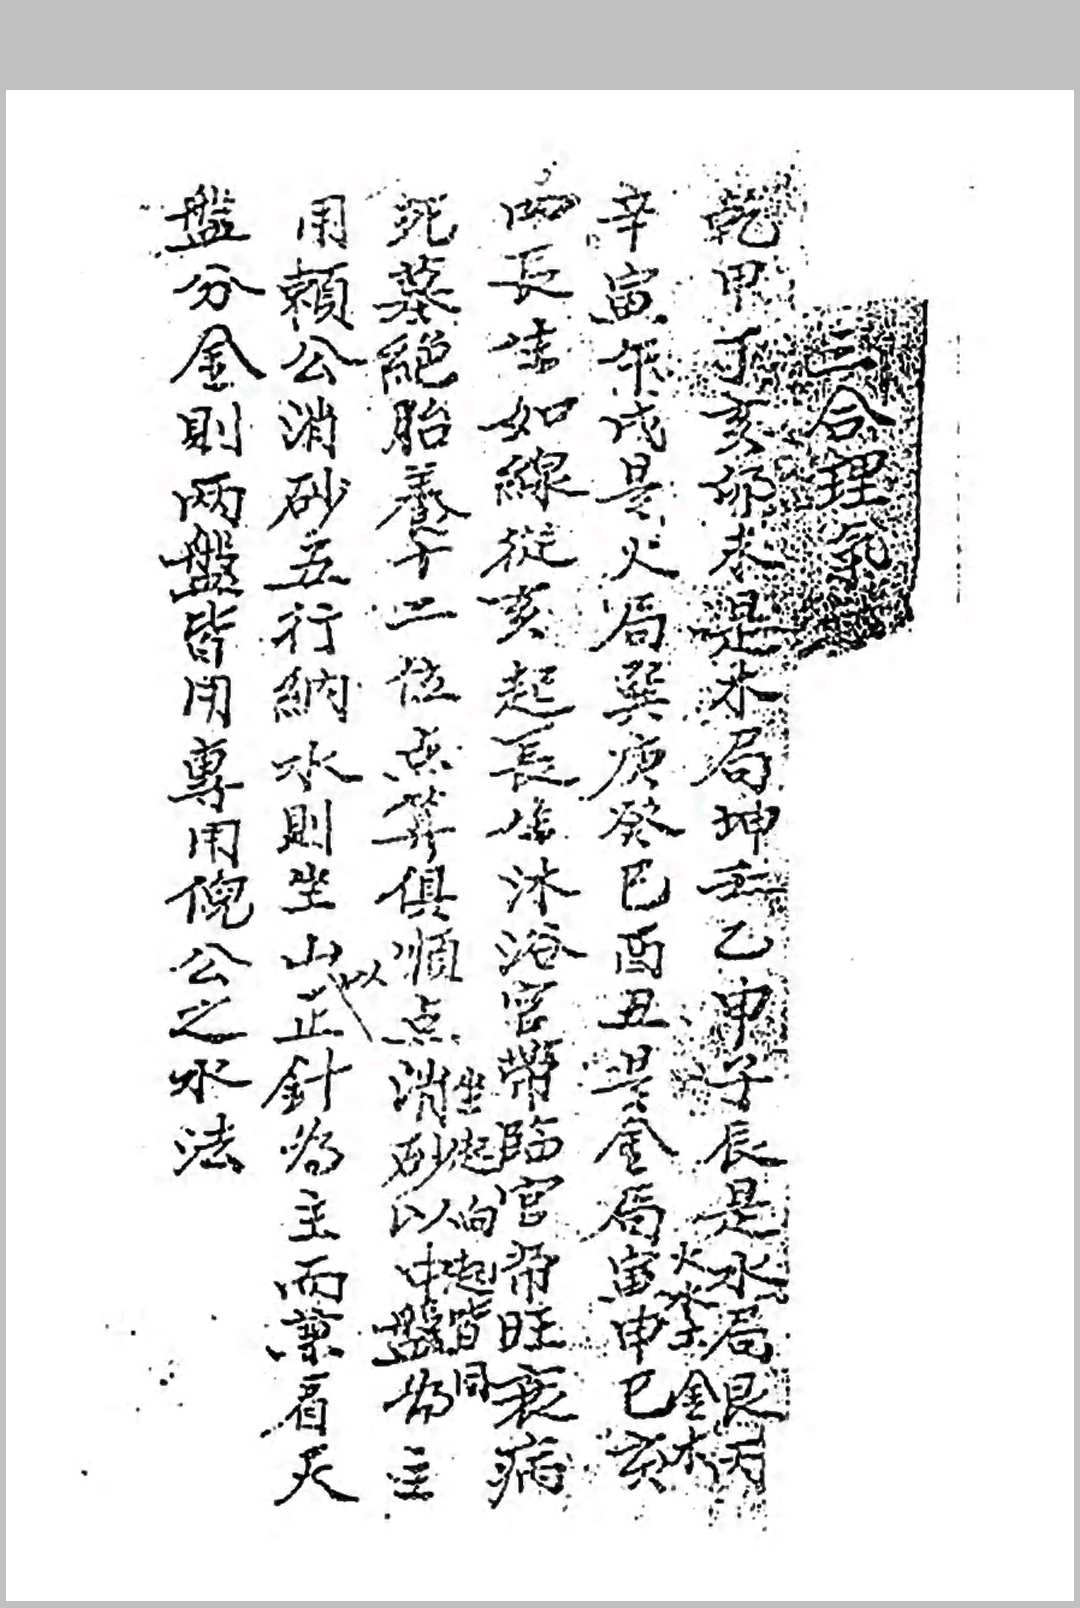 三合理氣
乾甲丁亥卯未是木局坤壬乙申子辰是水局艮丙
辛寅午戌是火局巽庚癸巳酉丑是金局寅申巳亥
火水土金木
四長生如線從亥起長生沐浴官帶臨官帝旺衰病
死墓絕胎養十二位点算俱順点消砂以中盤為主
坐起向起皆同
用賴公消砂五行納水則坐山以正針為主而兼看天
盤分金則两盤皆用專用倪公之水法